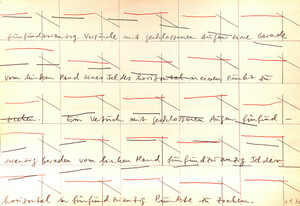 fünfundzwanzig Versuche mit geschlossenen Augen eine Gerade
vom linken Rand eines Feldes horizontal in einen Punkt zu
ziehen Ein Versuch mit geschlossenen Augen fünfund-
zwanzig Geraden vom linken Rand fünfundzwanzig Felder
horizontal in fünfundzwanzig Punkte zu ziehen.